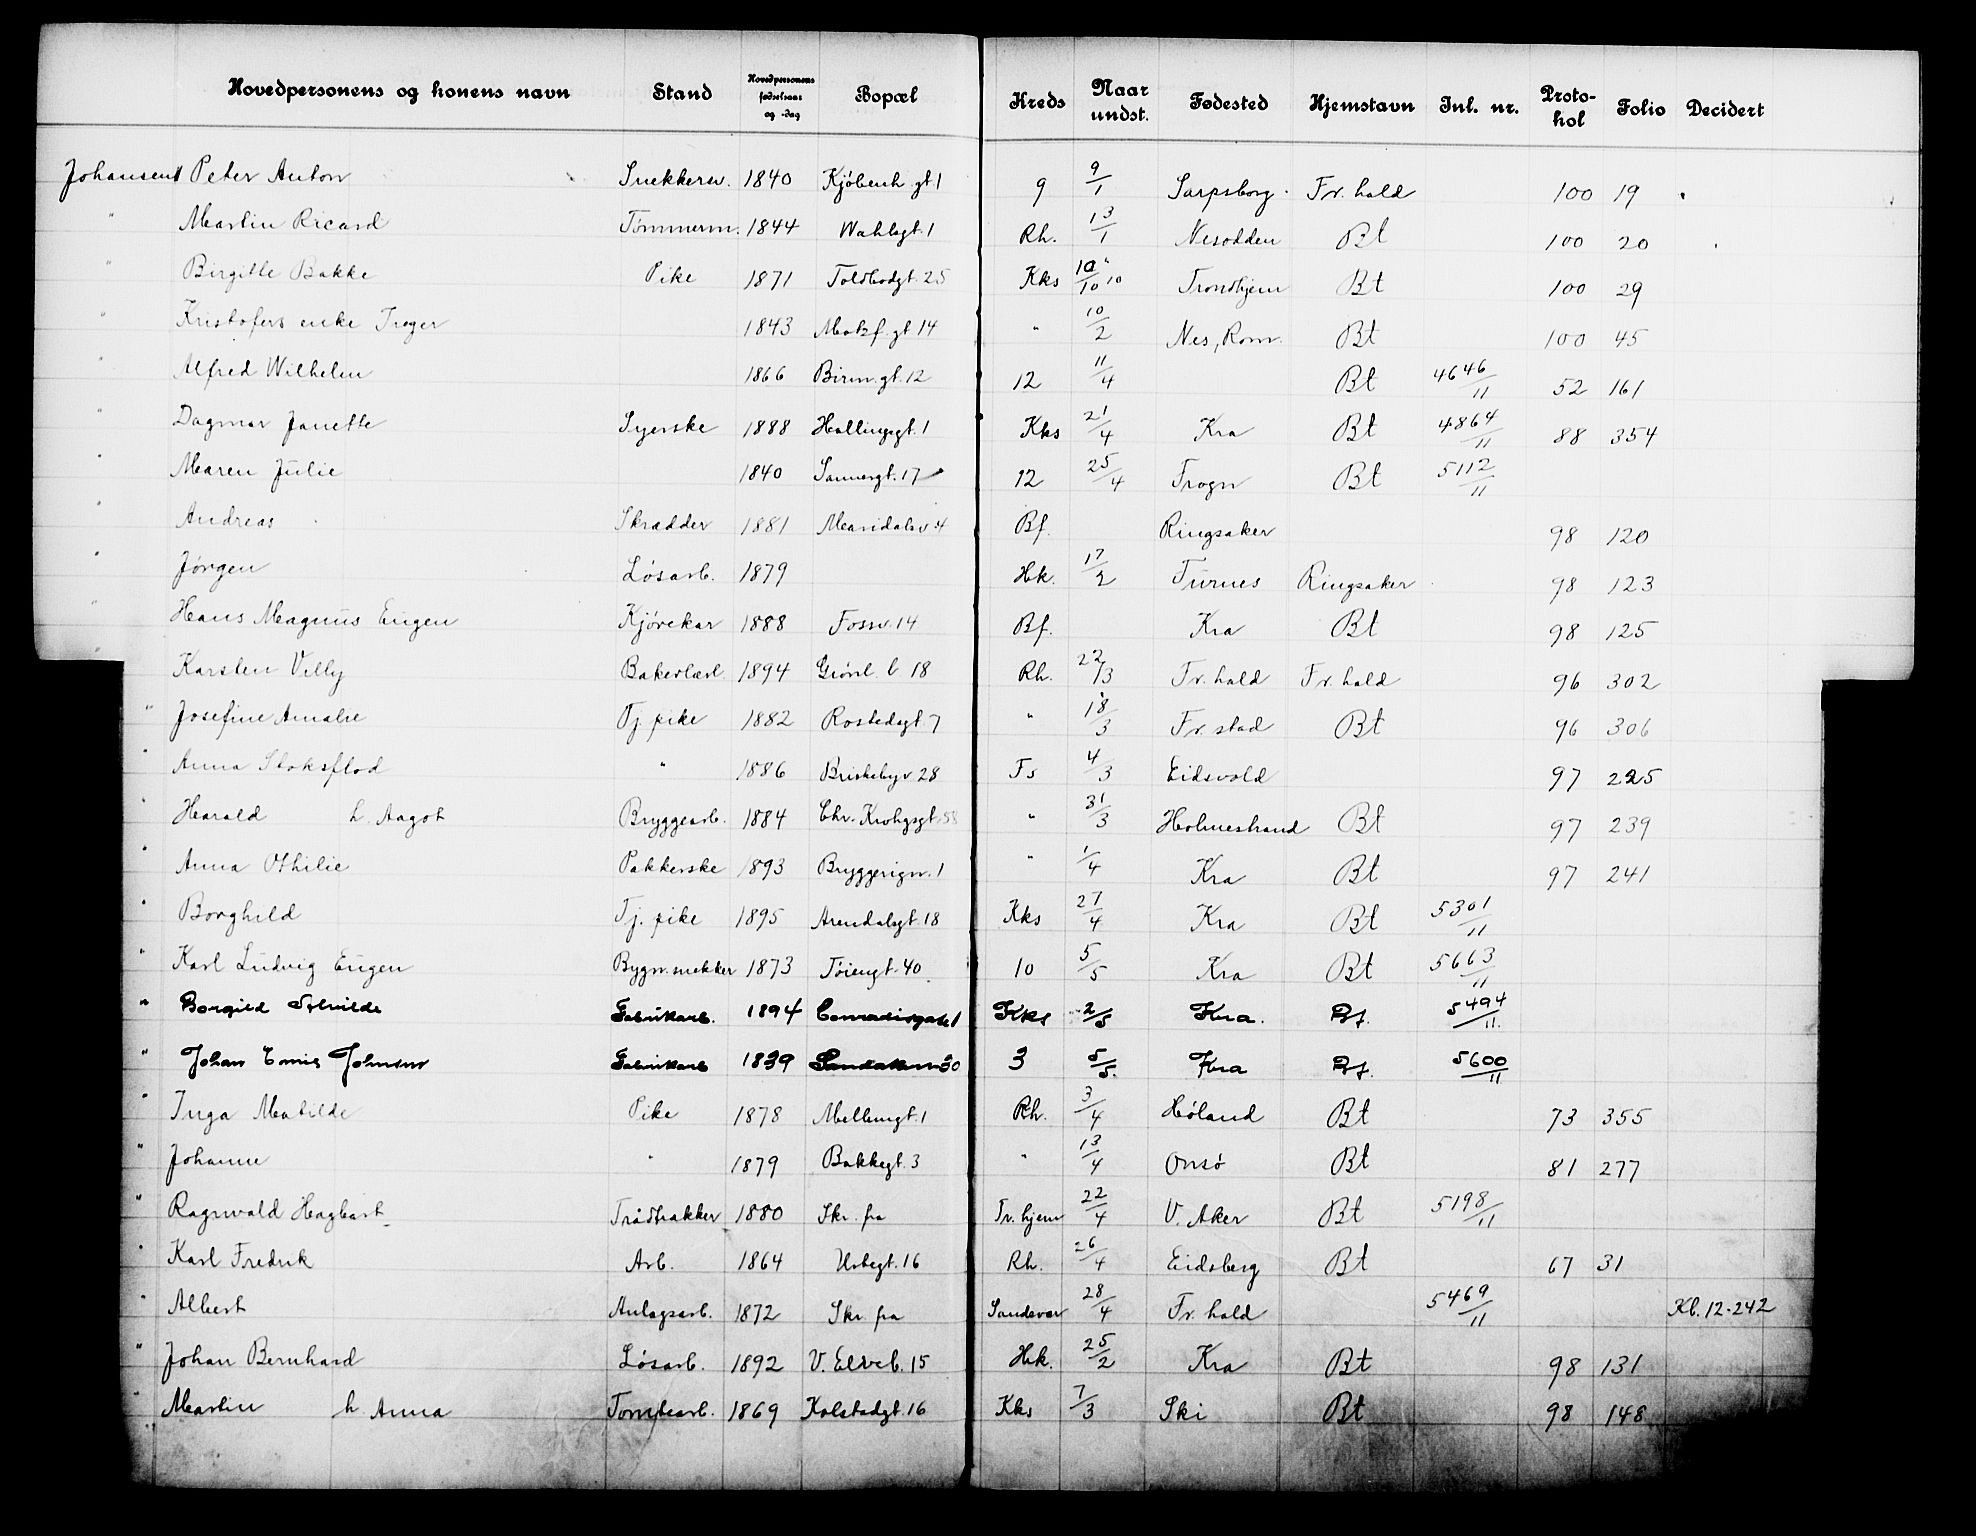 Hovedpersonens og konens navn Stand Hovedpersonens fødselsaar og -dag Bopæl Kreds Naar undst. Fødested Hjemstavn Inl. nr. Proto-kol Folio Decidert
Johansen Peter Anton Snekkersv. 1840 Kjøbenh. gt 1 9 9/1 Sarpsborg Fr. hald 100 19
" Martin Ricard Tømmerm. 1844 Wahlsgt. 1 Rh. 13/1 Nesodden Bt 100 20
" Birgitte Bakke Pike 1871 Toldbodgt. 25 Kks 10/10 10 Trondhjem Bt 100 29
" Kristofers enke Treger 1843 Motzf. gt 14 " 10/2 Nes, Rom. Bt 100 45
" Alfred Wilhelm 1866 Birm. gt. 12 12 11/4 Bt 4646/11 52 161
" Dagmar Janette Syerske 1888 Hallingsgt. 1 Kks 21/4 Kra Bt 4864/11 88 354
" Maren Julie 1840 Sannergt. 17 12 25/4 Frogn Bt 5112/11
" Andreas Skrædder 1881 Maridalsv 4 Bf. Ringsaker 98 120
" Jørgen Løsarb. 1879 Hk. 17/2 Furnes Ringsaker 98 123
" Hans Magnus Eugen Kjørekar 1888 Fossv. 14 Bf. Kra Bt 98 125
" Karsten Villy Bakerlærl. 1894 Grønl. l 18 Rh. 22/3 Fr. hald Fr. hald 96 302
" Josefine Amalie Tj. pike 1882 Rostedsgt 7 " 18/3 Fr. stad Bt 96 306
" Anna Stoksflod " 1886 Briskebyv 28 Fs 4/3 Eidsvold 97 225
" Harald h. Aagot Bryggearb. 1884 Chr. Krohgsgt. 58 " 31/3 Holmestrand Bt 97 239
" Anna Othilie Pakkerske 1893 Bryggerign. 1 " 1/4 Kra Bt 97 241
" Borghild Tj. pike 1895 Arendalsgt. 18 Kks 27/4 Kra Bt 5301/11
" Karl Ludvig Eugen Bygn. snekker 1873 Tøiengt. 40 10 5/5 Kra Bt 5663/11
" Borgild Fabrikarb. 1894 Kks 2/5 Kra. Bt. 5494/11
" Johan Fabrikarb 1839 30 3 5/5 Kra Bt. 5600/11
" Inga Matilde Pike 1878 Mellemgt. 1 Rh. 3/4 Høland Bt 73 355
" Johanne " 1879 Bakkegt. 3 " 13/4 Onsø Bt 81 277
" Ragnvald Hagbart Trådtrakker 1880 Skr. fra Tr. hjem 22/4 V. Aker Bt 5198/11
" Karl Fredrik Arb. 1864 Urtegt. 16 Rh. 26/4 Eidsberg Bt 67 31
" Albert Anlægsarb. 1872 Skr. fra Sandevær 28/4 Fr. hald 5469/11 Kl. 12-242
" Johan Bernhard Løsarb. 1892 V. Elveb. 15 Hk. 25/2 Kra Bt 98 131
" Martin h. Anna Tomtearb. 1869 Kolstadgt. 16 Kks 7/3 Ski Bt 98 148